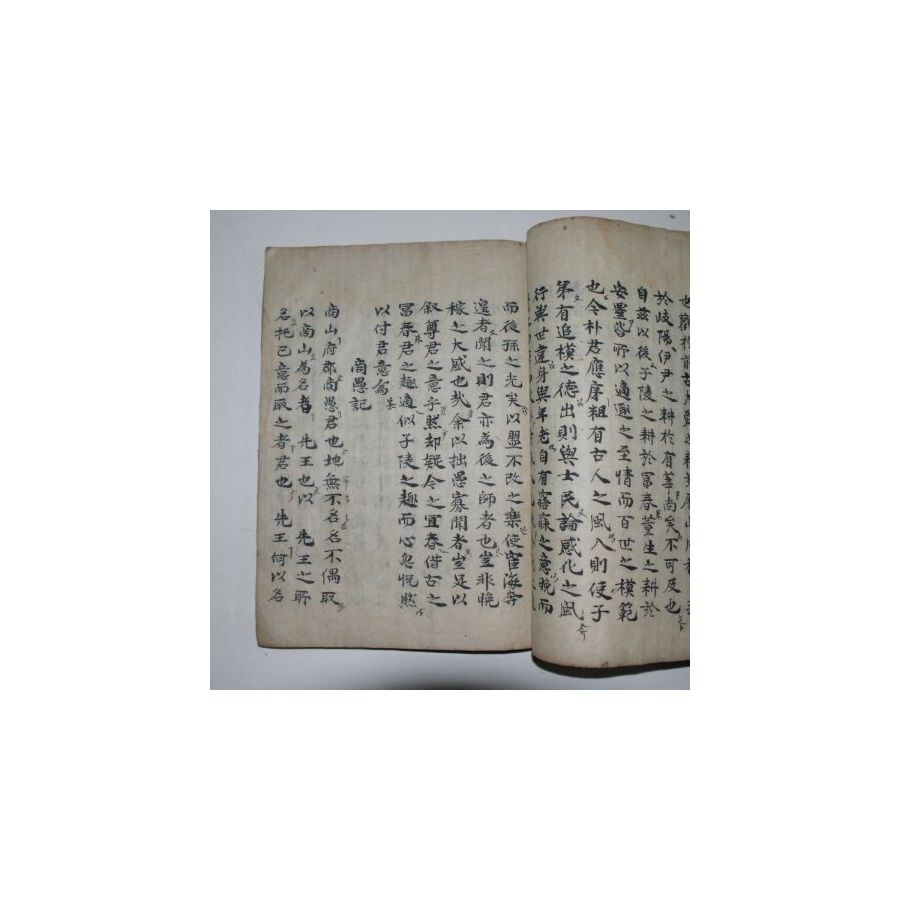 於岐陽伊尹之耕於有莘尚矣不可及也
自玆以後子陵之耕於富春董生之耕於
安豊皆所以適遯之至情而百世之模範
也今朴君應序粗有古人之風入則使子
弟有追模之德出則與士民論感化之風
行與世違身與年老自有寤寐之意晩而
而後孫之光矣以盟不改之樂使宦海奔
追者聞之則君亦為後之師者也豈非晩
稼之大感也哉余以拙愚寡聞者豈足以
叙尊君之意乎然却疑今之宜春借古之
富春君之趣適似子陵之趣而心忽怳然
以付君意侖
尙愚記
山府郡尙愚君也地無不名名不偶取
以山爲名者先王也以先王之所
名托己意而取之者君也先王何以名